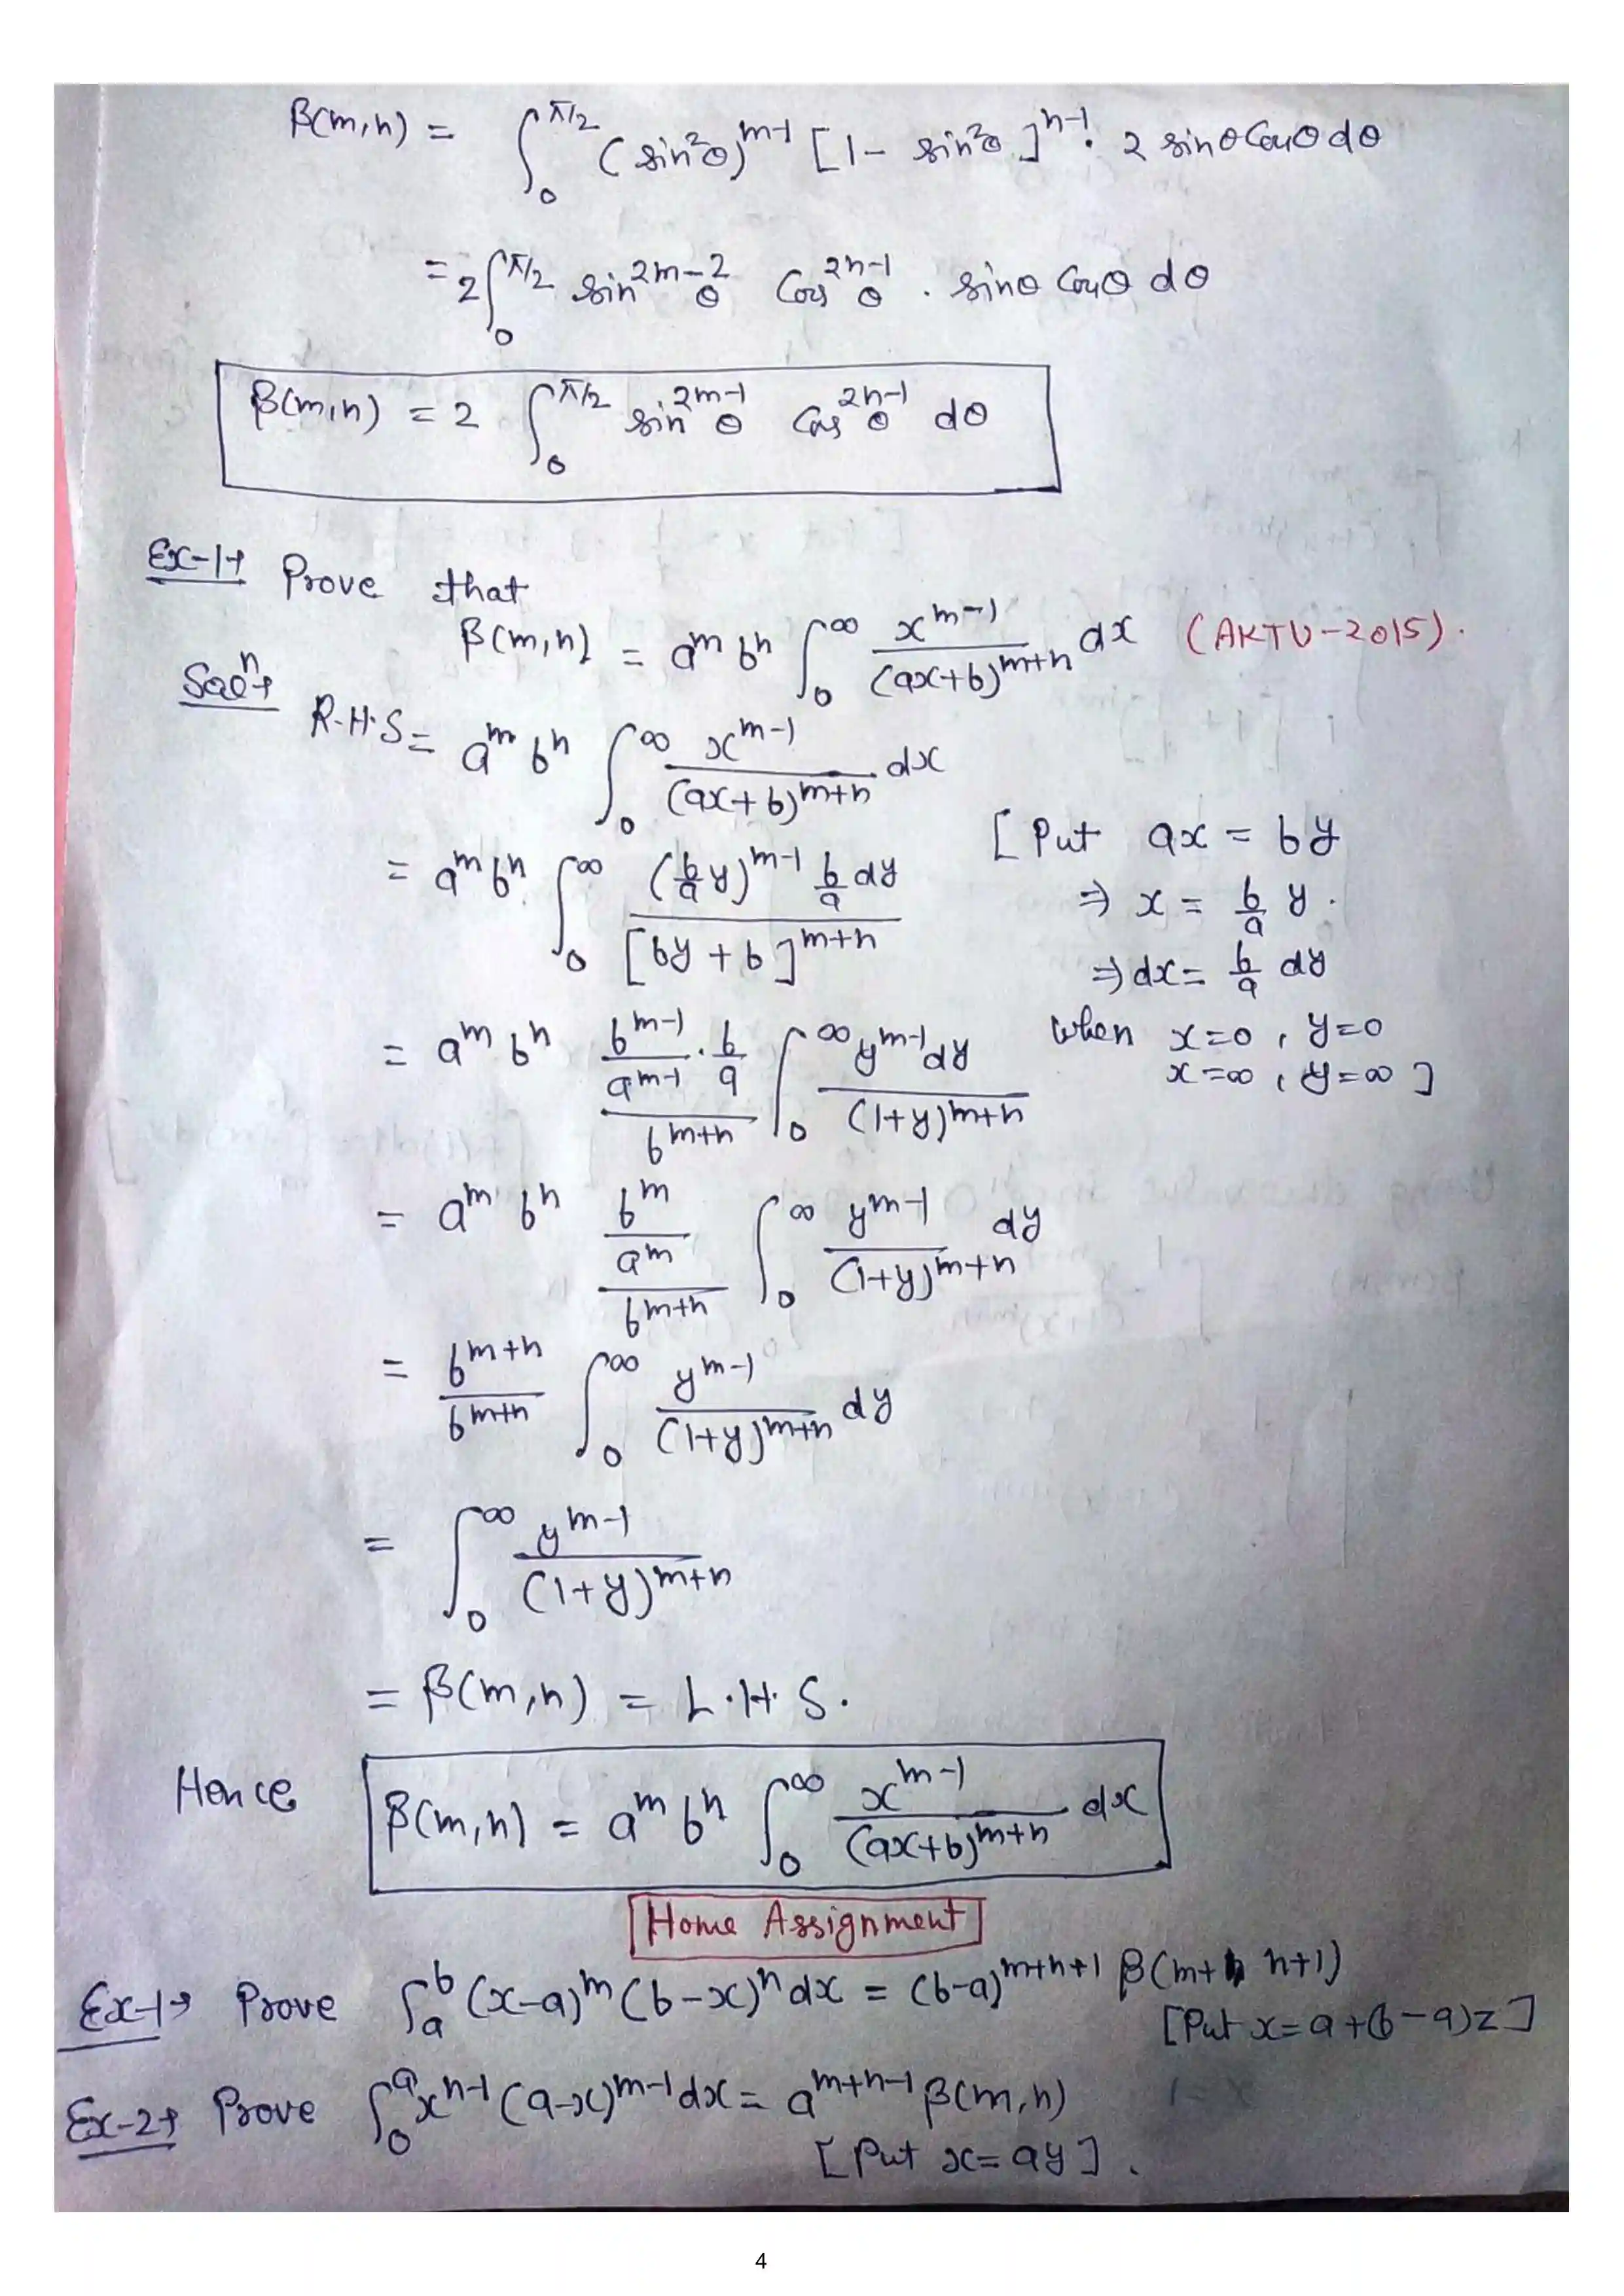 β(m,n) = ∫₀^{π/2} (sin²θ)^{m-1} [1- sin²θ]^{n-1}. 2 sinθ Cosθ dθ
= 2∫₀^{π/2} sin^{2m-2}θ Cos^{2n-1}θ . sinθ Cosθ dθ
β(m,n) = 2 ∫₀^{π/2} sin^{2m-1}θ Cos^{2n-1}θ dθ
Ex-1→ Prove that
β(m,n) = a^m b^n ∫₀^∞ x^{m-1}/(ax+b)^{m+n} dx (AKTU-2015).
Solⁿ→
R.H.S = a^m b^n ∫₀^∞ x^{m-1}/(ax+b)^{m+n} dx
= a^m b^n ∫₀^∞ (b/a y)^{m-1} b/a dy/[by+b]^{m+n} [Put ax = by
⇒ x = b/a y.
⇒ dx = b/a dy
= a^m b^n (b^{m-1}/a^{m-1} . b/a)/b^{m+n} ∫₀^∞ y^{m-1} dy/(1+y)^{m+n} when x=0, y=0
x=∞, y=∞]
= a^m b^n (b^m/a^m)/b^{m+n} ∫₀^∞ y^{m-1}/(1+y)^{m+n} dy
= b^{m+n}/b^{m+n} ∫₀^∞ y^{m-1}/(1+y)^{m+n} dy
= ∫₀^∞ y^{m-1}/(1+y)^{m+n}
= β(m,n) = L.H.S.
Hence β(m,n) = a^m b^n ∫₀^∞ x^{m-1}/(ax+b)^{m+n} dx
Home Assignment
Ex-1→ Prove ∫ₐ^b (x-a)^m (b-x)^n dx = (b-a)^{m+n+1} β(m+ n+1)
[Put x=a+(b-a)z]
Ex-2→ Prove ∫₀^a x^{n-1} (a-x)^{m-1} dx = a^{m+n-1} β(m,n)
[Put x=ay].
4